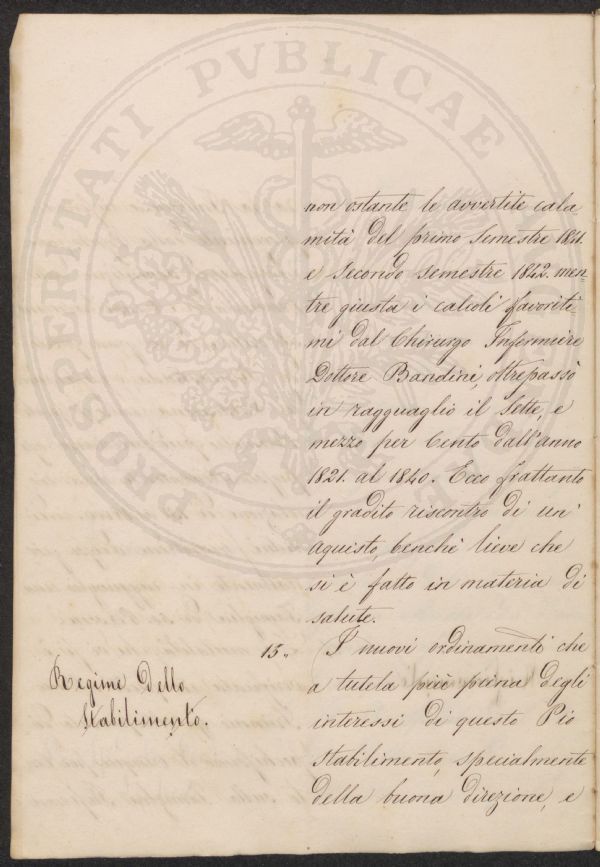 PROSPERITATI PVBLICAE
non ostante le avvertite cala=
mità del primo semestre 1841.
e secondo semestre 1842. men=
tre giusta i calcoli favoriti=
mi dal Chirurgo Infermiere
Dottore Bandini, oltrepassò
in ragguaglio il sette, e
mezzo per Cento dall'anno
1821. al 1840. Ecco frattanto
il gradito riscontro di un'
aquisto, benchè lieve che
si è fatto in materia di
salute.
15..
I nuovi ordinamenti che
Regime dello
Stabilimento.
a tutela più piena degli
interessi di questo Pio
stabilimento, specialmente
della buona direzione, e